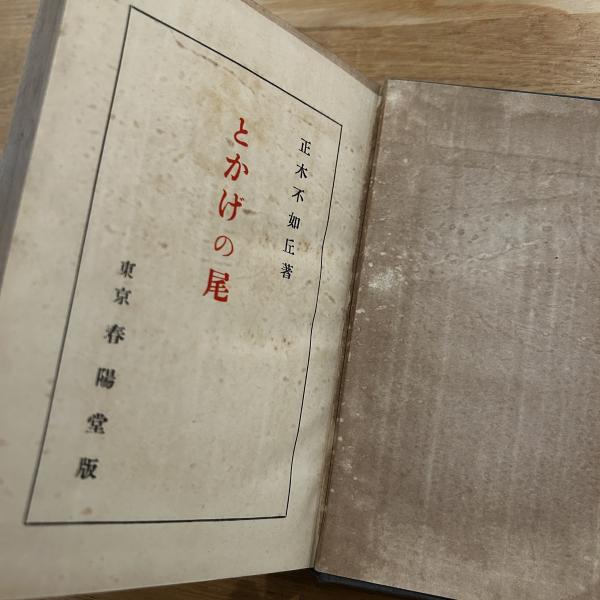 正木不如丘著
とかげの尾
東京春陽堂版